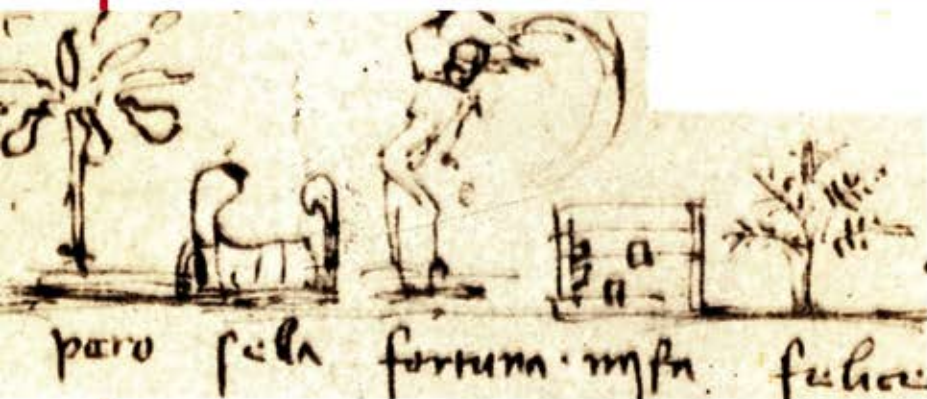 pero sella fortuna · mi fa felice